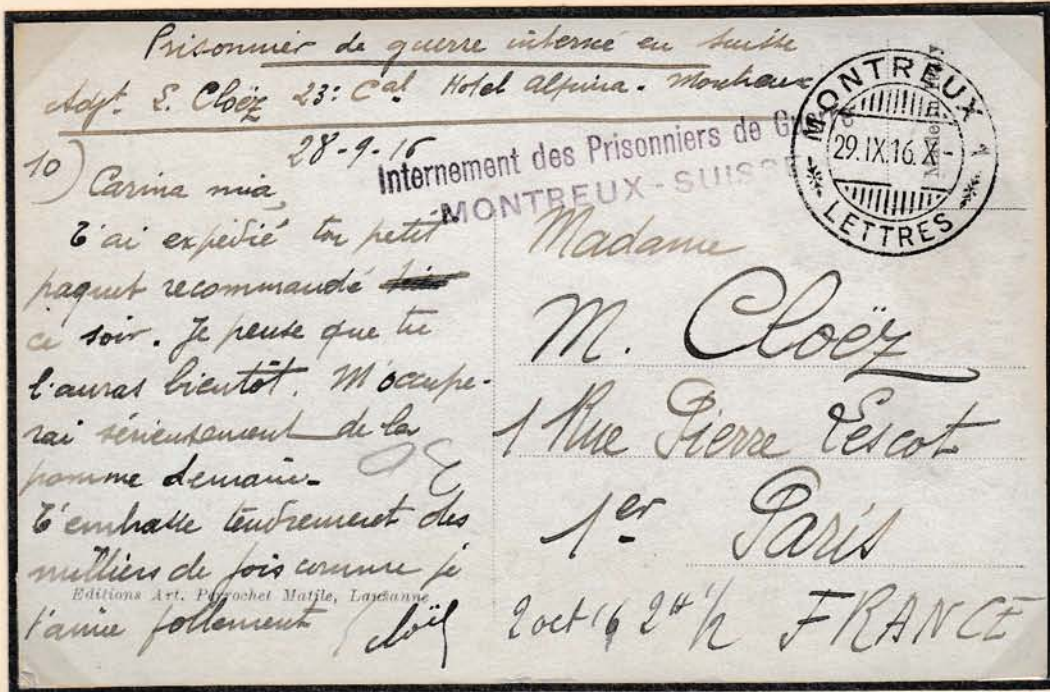 Prisonnier de guerre interné en Suisse
Adjt. L. Cloëz 23e Cal Hotel Alpina. Montreux
28-9-16
Internement des Prisonniers de Guerre
MONTREUX-SUISSE
MONTREUX 1
29.IX.16.X-
LETTRES
10) Carina mia,
T'ai expédié ton petit
paquet recommandé
ce soir. Je pense que tu
l'auras bientôt. M'occupe-
rai sérieusement de la
pomme demain.
T'embrasse tendrement des
milliers de fois comme je
t'aime follement
Cloëz
Editions Art. Perrochet Matile, Lausanne
Madame
M. Cloëz
1 Rue Pierre Lescot
1er Paris
2 oct 16 2H 1/2 FRANCE